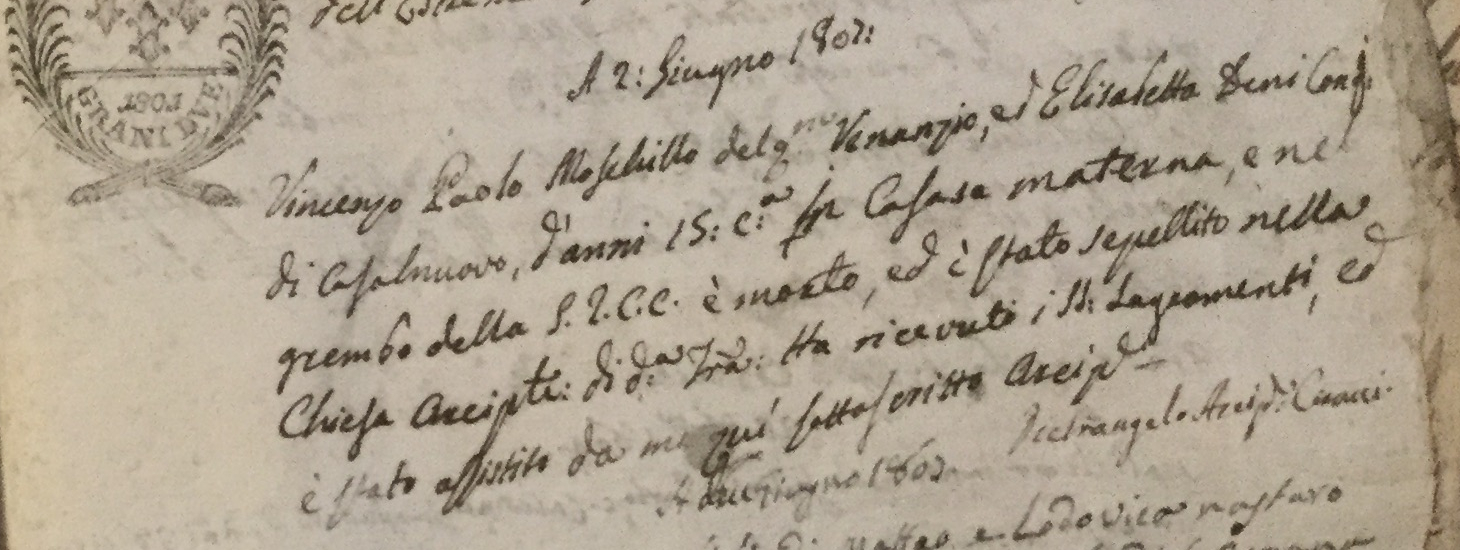 A 2: Giugno 1802:
1801
GRANI DUE
Vincenzo Paolo Moschillo del qm Venanzio, ed Elisabetta Deni Cong:
di Casalnuovo, d'anni 15: c:a in Casa materna, e nel
grembo della S. R. C. C. è morto, ed è stato sepellito nella
Chiesa Arcipte: di d:a Trã: Ha ricevuti i SS: Sagramenti, ed
è stato assistito da me quì sottoscritto Arcipe
Pietrangelo Arcip:
A Giugno 1802
di Matteo e Lodovica